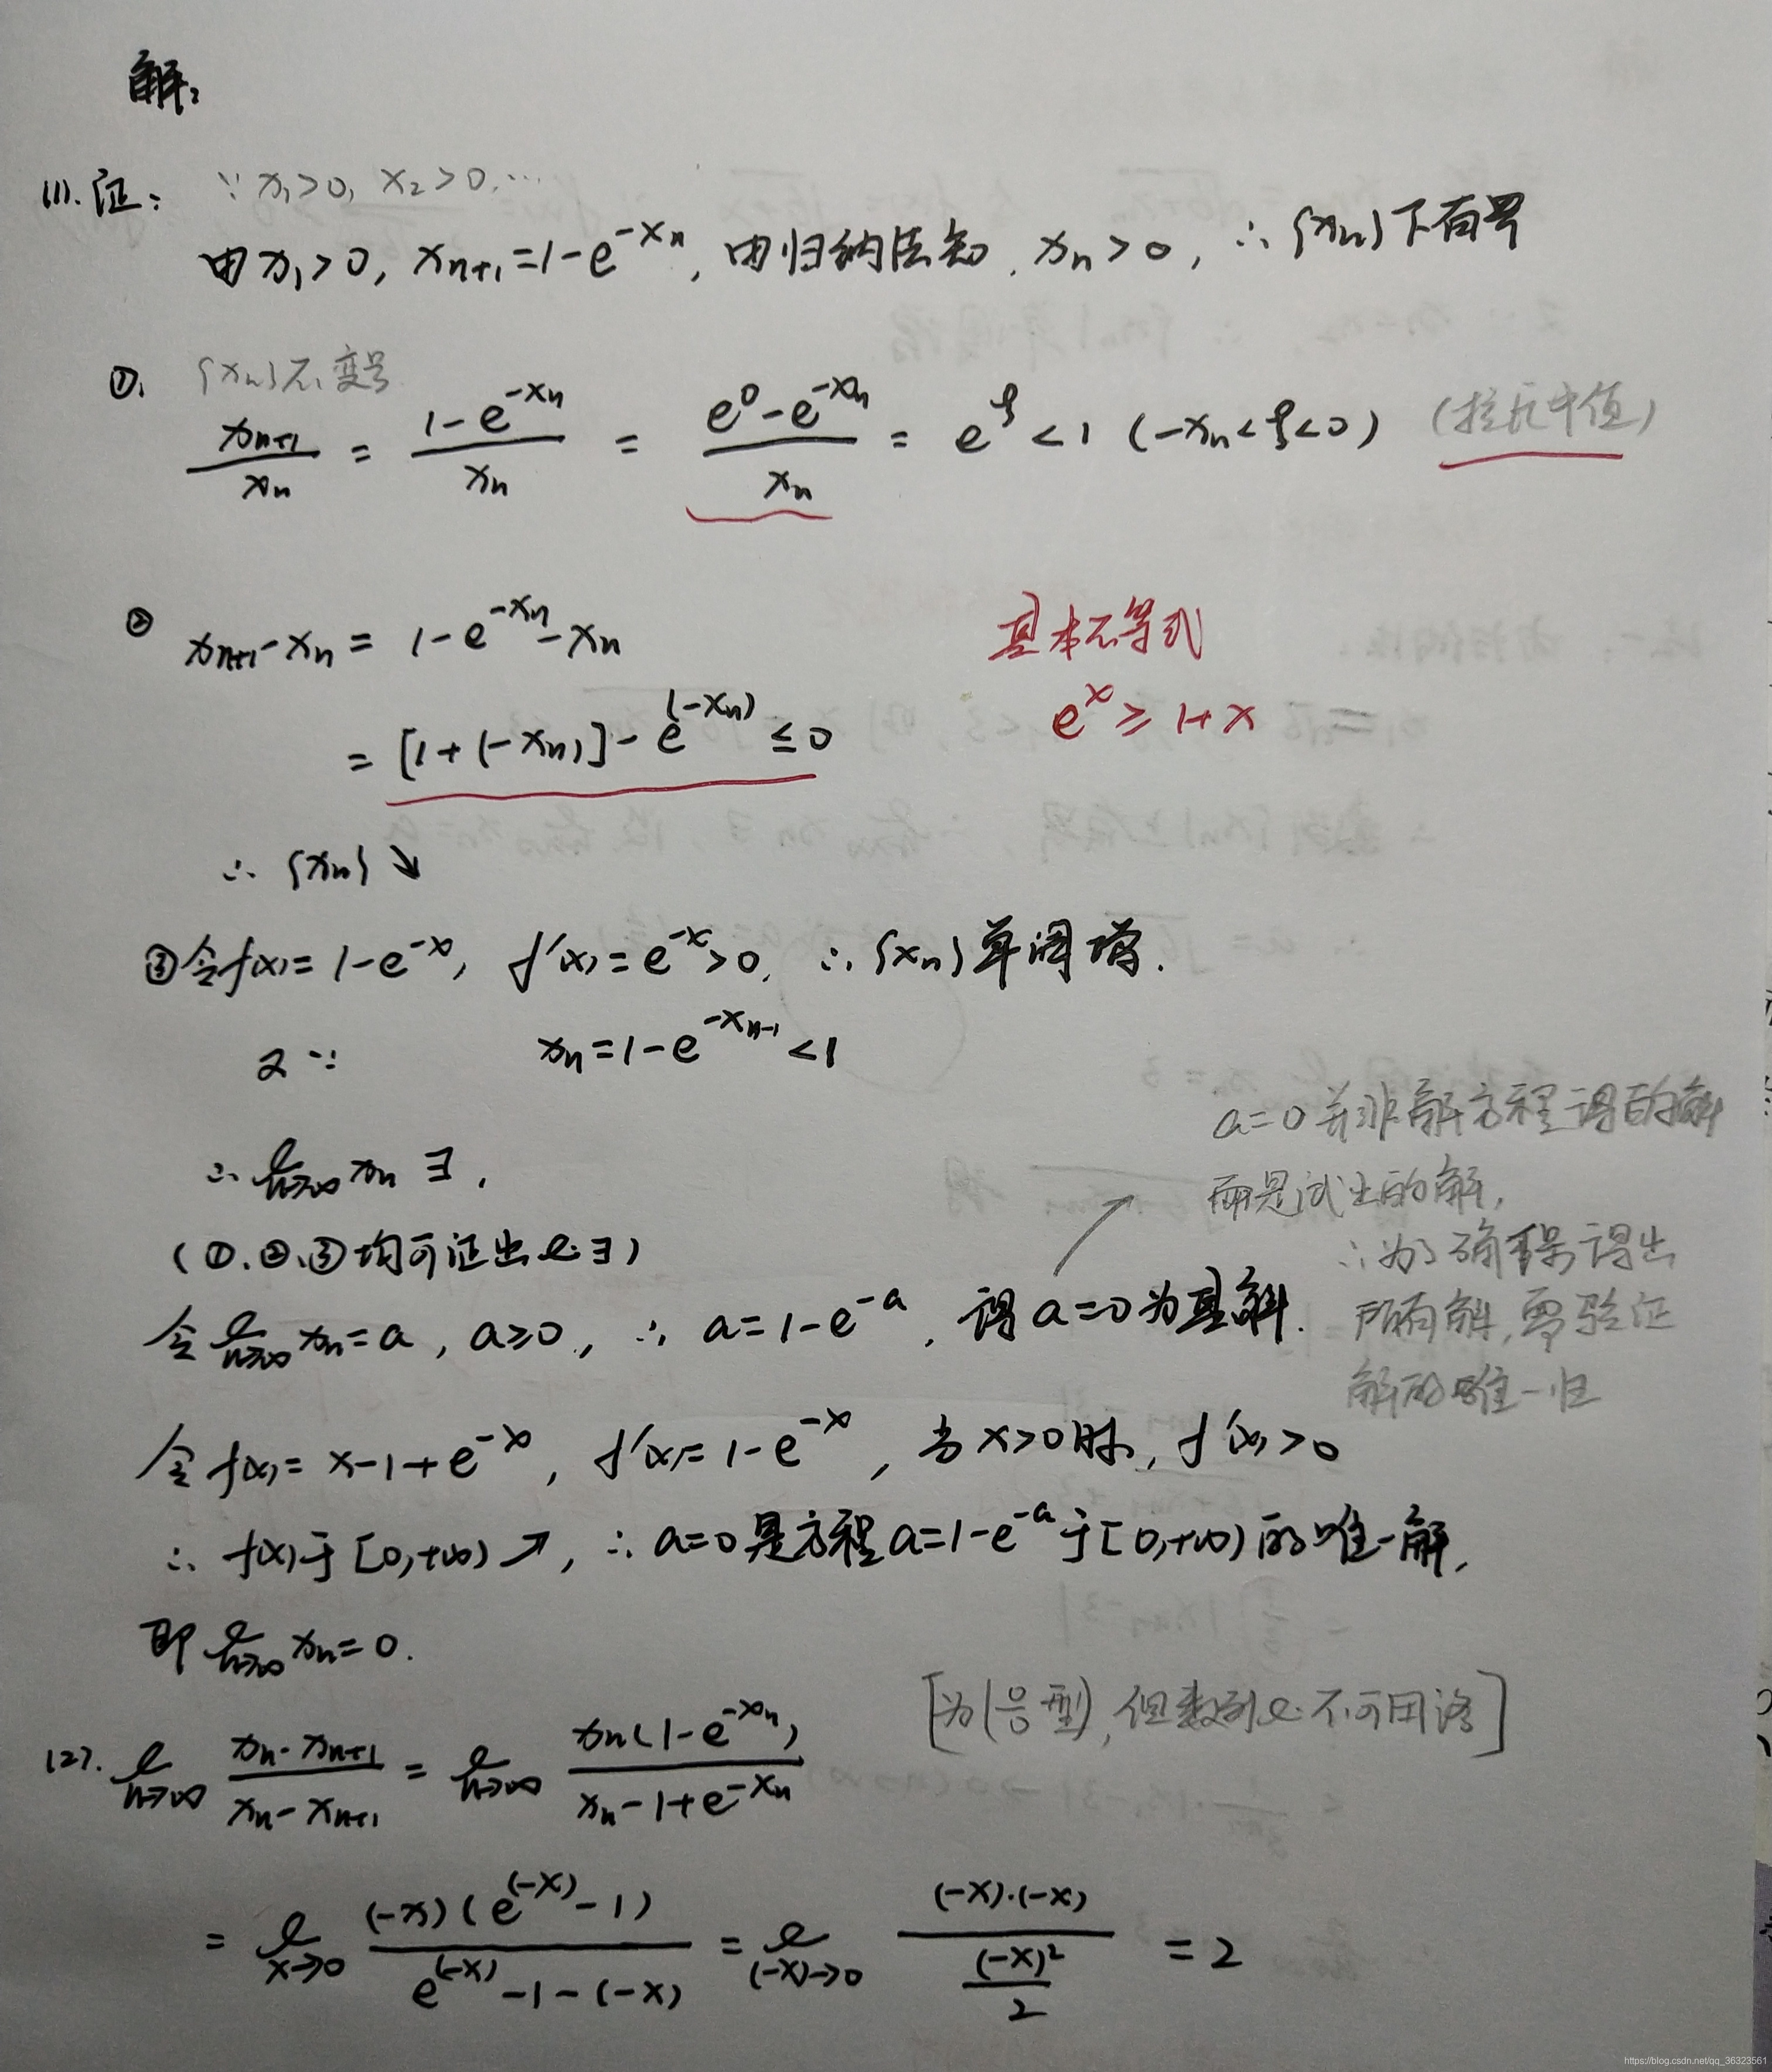 解:
(1). 证: ∵ x₁>0, x₂>0, …
由x₁>0, xₙ₊₁=1-e^(-xₙ), 由归纳法知, xₙ>0, ∴{xₙ}下有界
①. {xₙ}不变号
xₙ₊₁/xₙ = (1-e^(-xₙ))/xₙ = (e⁰-e^(-xₙ))/xₙ = e^ξ <1 (-xₙ<ξ<0) (拉氏中值)
② xₙ₊₁-xₙ = 1-e^(-xₙ)-xₙ
基本不等式
= [1+(-xₙ)]-e^(-xₙ) ≤0
e^x ≥ 1+x
∴ {xₙ}↘
③令f(x)=1-e^(-x), f'(x)=e^(-x)>0, ∴{xₙ}单调增.
又∵ xₙ=1-e^(-xₙ₋₁)<1
∴ lim n→∞ xₙ ∃,
(①、②、③均可证出 l. ∃)
a=0并非解方程得的解
而是试出的解,
∴为了确保得出
所有解,需验证
解的唯一性
令 lim n→∞ xₙ=a, a≥0, ∴ a=1-e^(-a), 得a=0为其解.
令f(x)=x-1+e^(-x), f'(x)=1-e^(-x), 当x>0时, f'(x)>0
∴ f(x)于[0,+∞)↗, ∴a=0是方程a=1-e^(-a)于[0,+∞)的唯一解,
即 lim n→∞ xₙ=0.
[为(0/0型), 但数列l.不可用洛]
(2). lim n→∞ (xₙ·xₙ₊₁)/(xₙ-xₙ₊₁) = lim n→∞ xₙ(1-e^(-xₙ))/(xₙ-1+e^(-xₙ))
= lim x→0 (-x)(e^(-x)-1)/(e^(-x)-1-(-x)) = lim (-x)→0 (-x)·(-x)/((-x)²/2) = 2
https://blog.csdn.net/qq_36323561